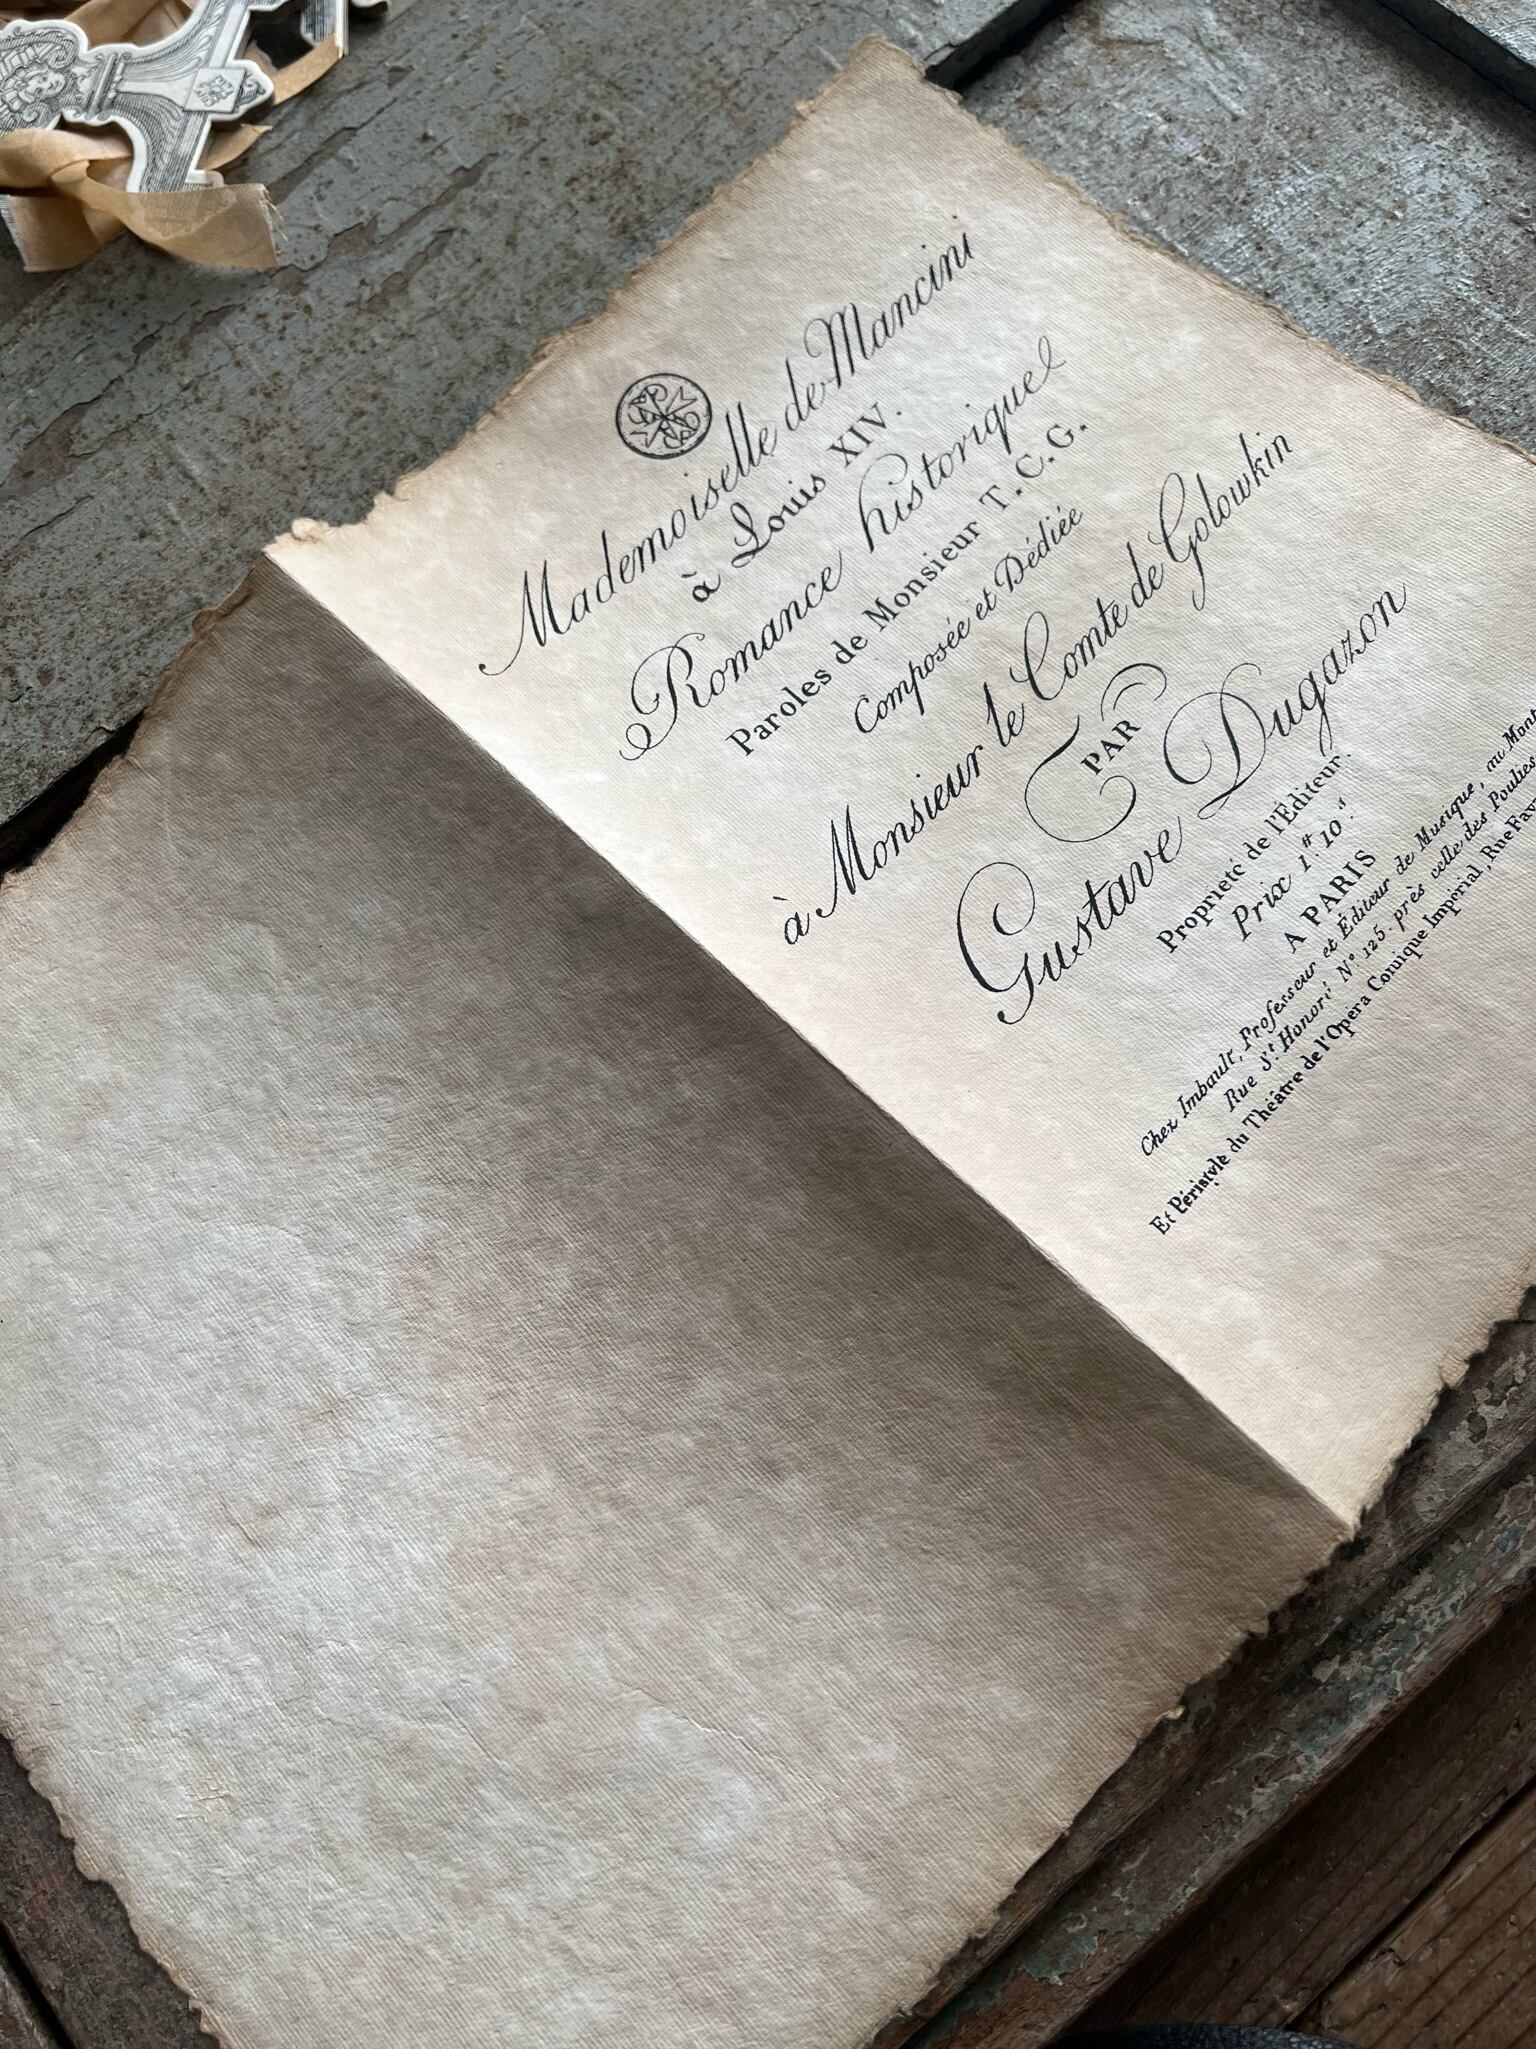 Mademoiselle de Mancini
à Louis XIV.
Romance historique
Paroles de Monsieur T. C. G.
Composée et Dédiée
à Monsieur le Comte de Golowkin
PAR
Gustave Dugazon
Propriété de l'Éditeur.
Prix 1.# 10.s
A PARIS
Chez Imbault, Professeur et Éditeur de Musique, au Mont
Rue St. Honoré N° 125. près celle des Poulies
Et Péristyle du Théâtre de l'Opéra Comique Impérial, Rue Fav